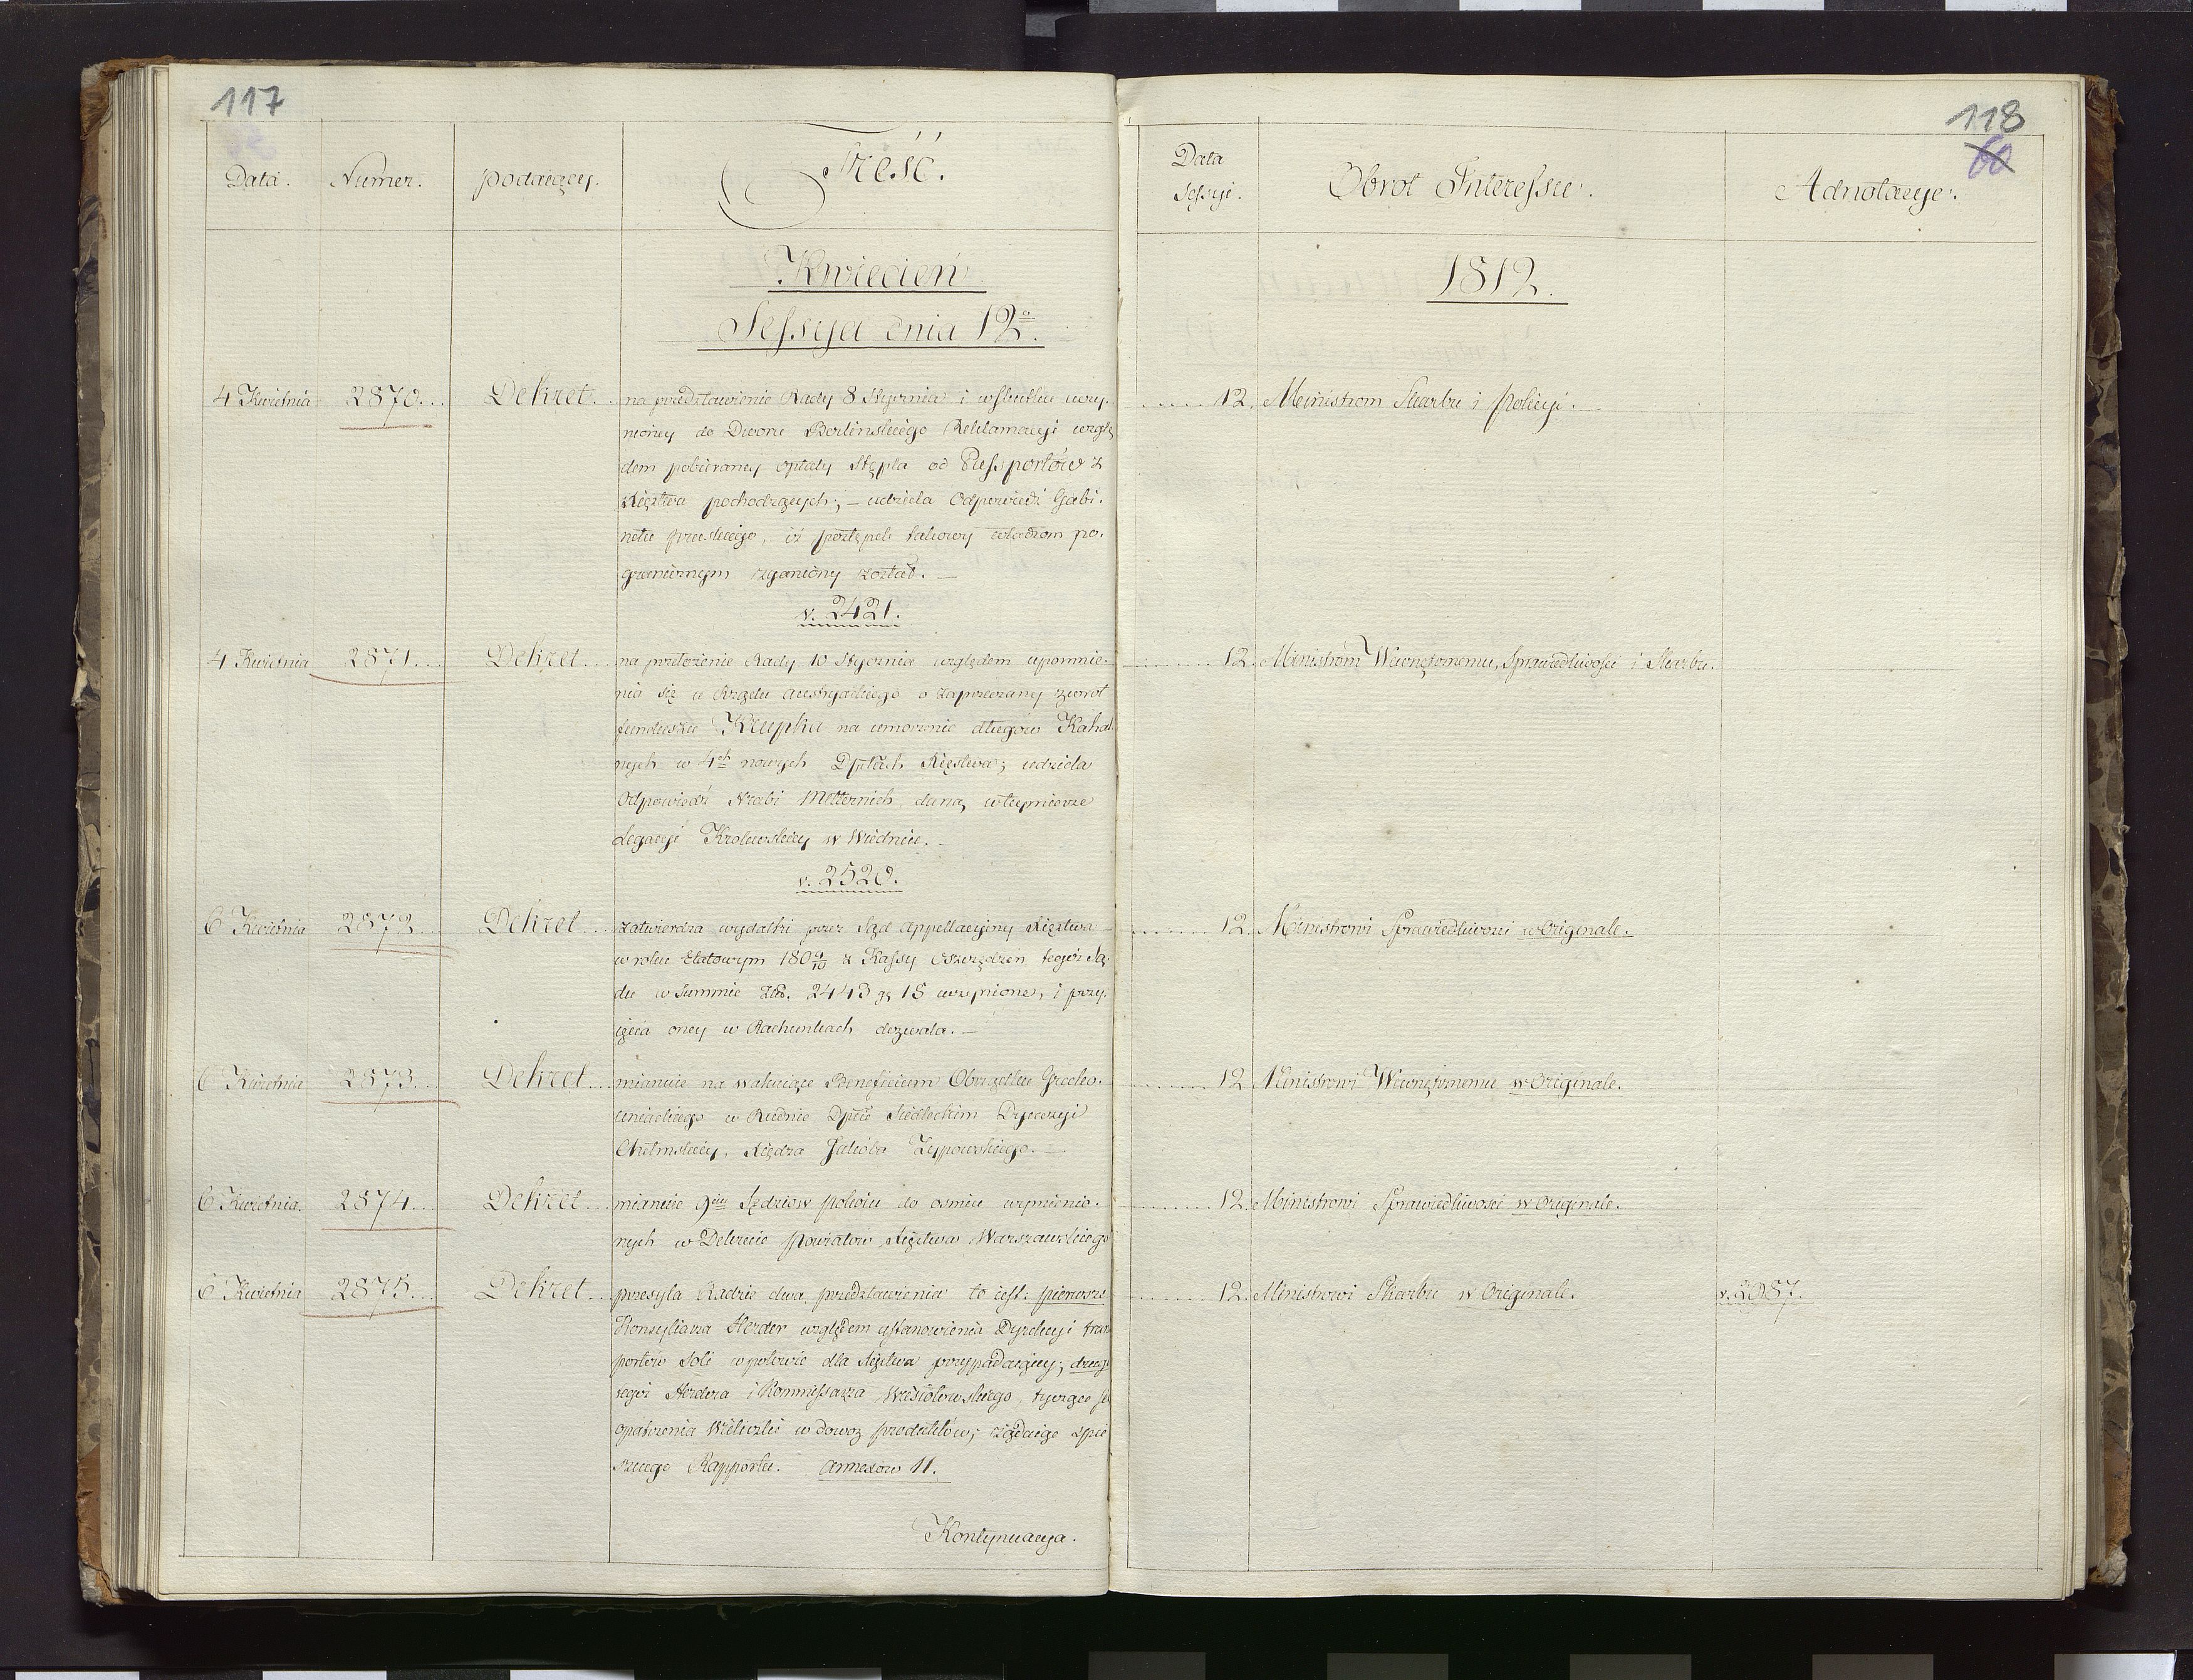 117
Data. Numer. podaiący. Treść.
Kwiecień
Sessya dnia 12º.
4 Kwietnia 2870... Dekret.. na przedstawienie Rady 8 Stycznia i w skutku uczy-
nioney do Dworu Berlinskiego Reklamacyi wzglę
dem pobieraney opłaty Stępla od Passportów z
Xięztwa pochodzących; – udziela Odpowiedź Gabi-
netu pruskiego, iż postępek takowy władzom po-
granicznym zganiony został. –
v. 2421.
4 Kwietnia 2871... Dekret... na przełożenie Rady 10 Stycznia względem upomnie-
nia się u Rządu Austryackiego o zaprzeczany zwrot
funduszu Krupka na umorzenie długów Kahal-
nych w 4ch nowych Dpttach Xięstwa; udziela
Odpowiedź Hrabi Metternich daną w tey mierze
Legacyi Krolewskiey w Wiedniu. –
v. 2520.
6 Kwietnia 2872... Dekret... zatwierdza wydatki przez Sąd Appellacyiny Xięztwa
w roku Etatowym 1809/10 z Kassy Oszczędzeń tegoż Są-
du w Summie Złp. 2443 gr 15 uczynione, i przy-
ięcia oney w Rachunkach dozwala. –
6 Kwietnia 2873... Dekret... mianuie na wakuiące Beneficium Obrządku Grecko-
uniackiego w Rudnie Dptcie Siedleckim Dyecezyi
Chełmskiey, Xiędza Jakóba Zyppowskiego. –
6 Kwietnia. 2874... Dekret... mianuie 9ciu Sędziow pokoiu do osmiu wymienio-
nych w Dekrecie powiatow Xięztwa Warszawskiego
6 Kwietnia 2875... Dekret... przesyła Radzie dwa przedstawienia to iest: pierwsze
Konsyliarza Herder względem ustanowienia Dyrekcyi tran
portów Soli w połowie dla Xięztwa przypadaiącey; drugi
tegoż Herdera i Kommissarza Wesiołowskiego, tyczące się
opatrzenia Wieliczki w dowoz produktów; żądaiąc spie
sznego Rapportu. Annexów 11.
Kontynuacya.
118
60
Data Sessyi. Obrot Interessu. Adnotacye.
1812.
.... 12. Ministrom Skarbu i Policyi. –
....... 12. Ministrom Wewnętrznemu, Sprawiedliwości i Skarbu.
....... 12. Ministrowi Sprawiedliwosci w Originale.
....... 12 Ministrowi Wewnętrznemu w Originale.
....... 12. Ministrowi Sprawiedliwosci w Originale.
....... 12. Ministrowi Skarbu w Originale. v. 2987.